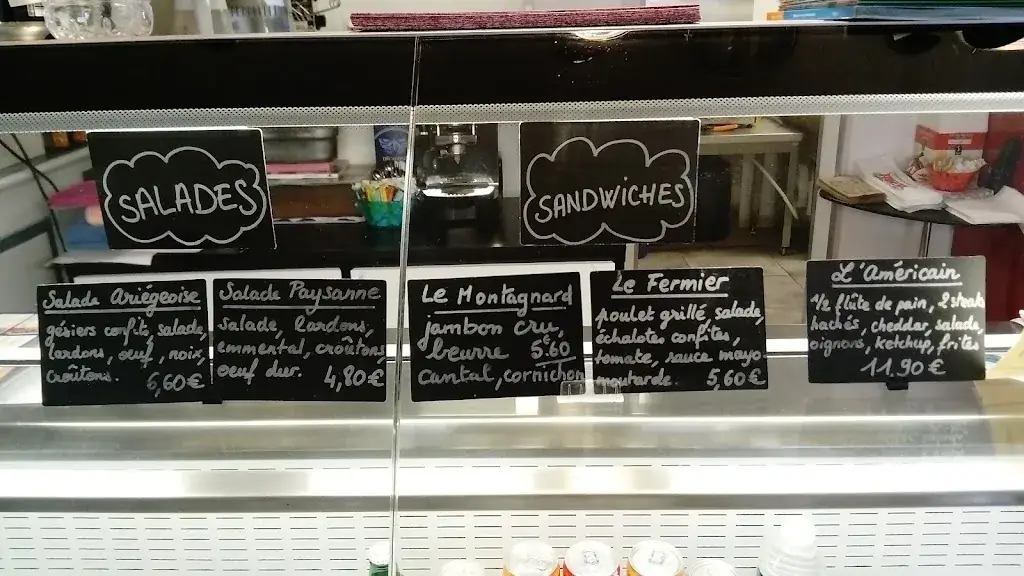 SALADES
SANDWICHES
Salade Ariégeoise
gésiers confit, salade,
lardons, oeuf, noix,
croûtons. 6,60€
Salade Paysanne
salade, lardons,
emmental, croûtons
oeuf dur. 4,80€
Le Montagnard
jambon cru,
beurre 5.60
cantal, cornichon
Le Fermier
poulet grillé, salade,
échalotes confites,
tomate, sauce mayo
moutarde. 5,60€
L'Américain
1/2 flûte de pain, 2 steak
hachés, cheddar, salade,
oignons, ketchup, frites
11.90€